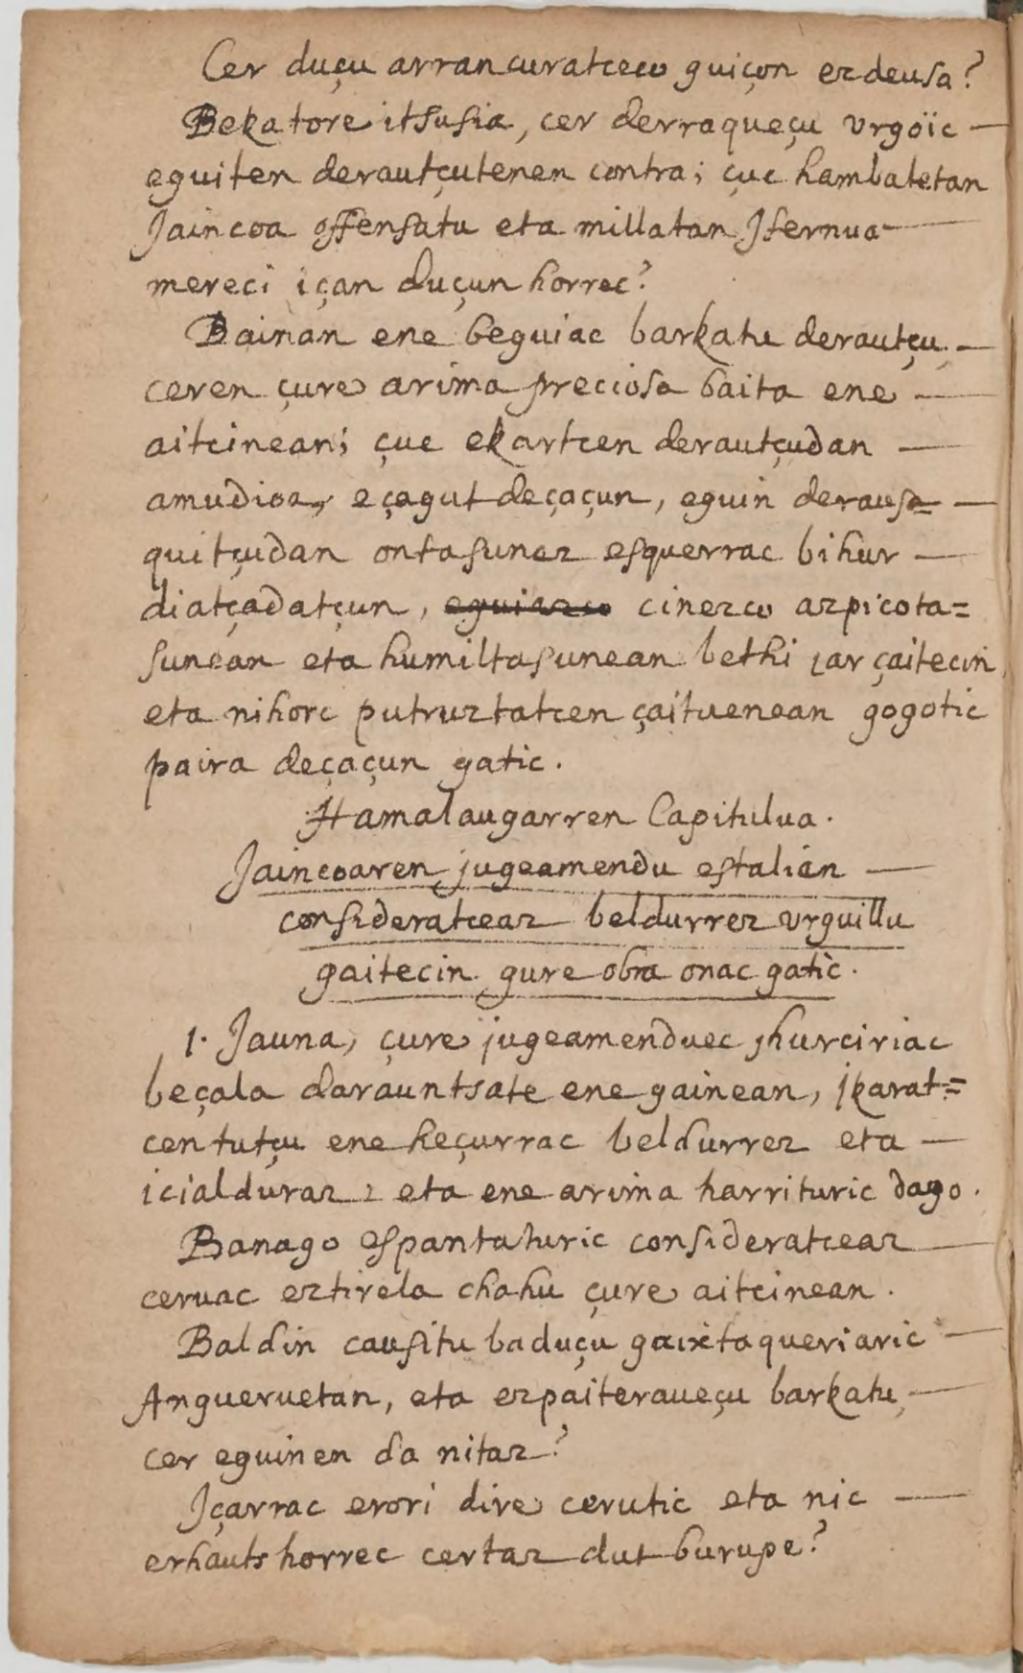 Cer duçu arrancuratceco guiçon ezdeusa?
Bekatore itsusia, cer derraqueçu vrgoïc —
eguiten derautçutenen contra; çuc hambatetan
Jaincoa offensatu eta millatan Jfernua —
mereci içan duçun horrec?
Bainan ene beguiac barkatu derautçu —
ceren çure arima preciosa baita ene —
aitcinean; çuc ekartcen derautçudan —
amudioa, eçagut deçaçun, eguin derausa= —
quitçudan ontasunez esquerrac bihur —
diatçadatçun, eguiazco cinezco azpicota=
sunean eta humiltasunean bethi jar çaitecin,
eta nihorc putruztatcen çaituenean gogotic
paira deçaçun gatic.
Hamalaugarren Capitulua.
Jaincoaren jugeamendu estalién —
consideratceaz beldurrez vrguillu
gaitecin gure obra onac gatic.
1. Jauna, çure jugeamenduec jhurciriac
beçala darauntsate ene gainean, jkarat=
centutçu ene heçurrac beldurrez eta —
icialduraz; eta ene arima harrituric dago.
Banago espantaturic consideratceaz —
ceruac eztirela chahu çure aitcinean.
Baldin causitu baduçu gaixtaqueriaric —
Angueruetan, eta ezpaiteraueçu barkatu, —
cer eguinen da nitaz?
Jçarrac erori dire cerutic eta nic —
erhauts horrec certaz dut burupe?